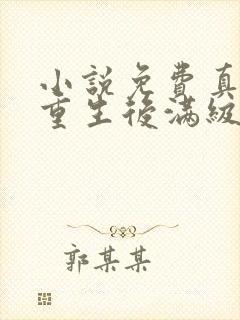 小說免費真
重生後滿級
郭某某